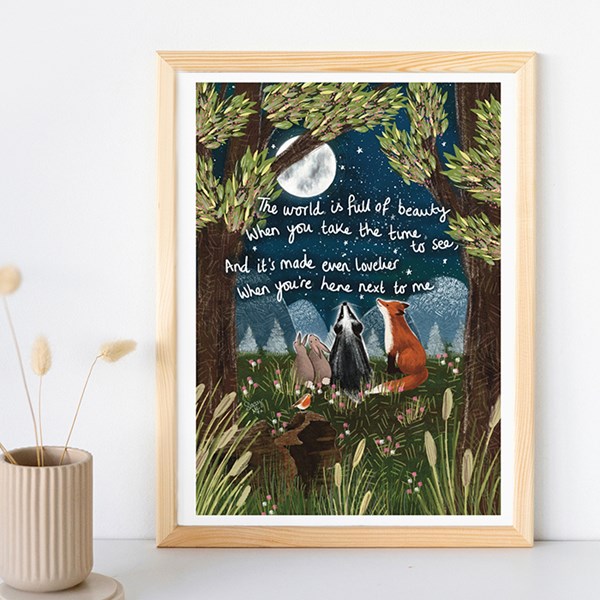 The world is full of beauty
When you take the time
to see,
And it's made even lovelier
When you're here next to me